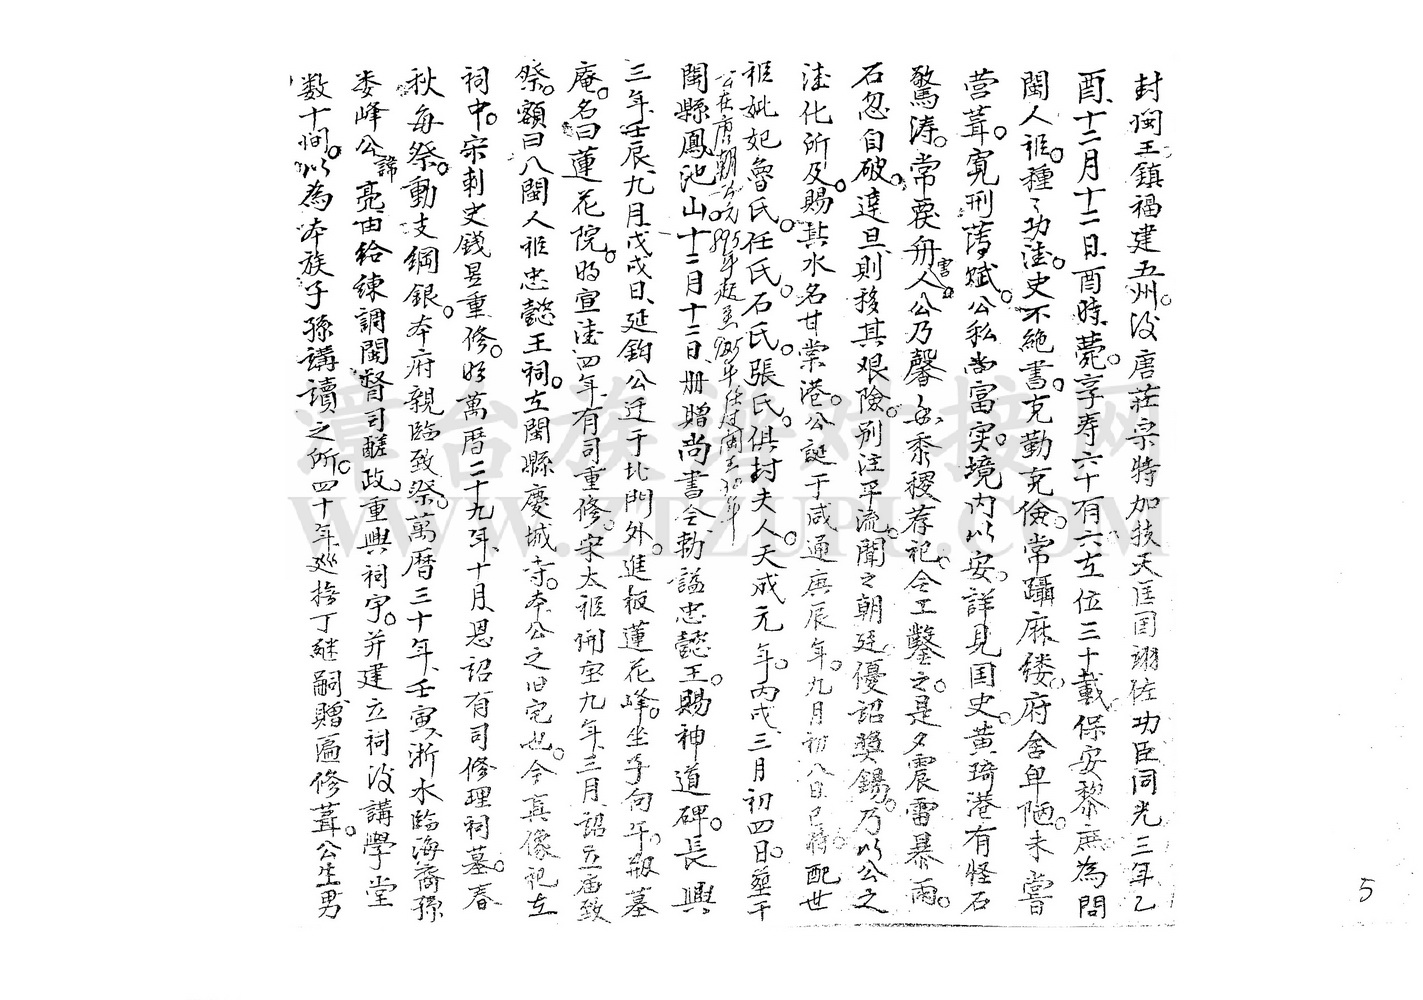 封閩王鎮福建五州。後唐莊宗特加扶天匡国翊佐功臣同光三年乙
酉、十二月十二日、酉時薨。享寿六十有六在位三十載、保安黎庶為問
閩人祖。種々功德。史不絶書。克勤克儉。常躡麻缕。府舍卑陋。未嘗
营葺。寛刑薄赋。公私尚富实。境内以安。詳見国史。黄琦港有怪石
驚涛。常覆舟人害。公乃馨香黍稷荐祀。令工鑿之。是夕震雷暴雨。
石忽自破。達旦、則移其艰險。别注平流。聞之朝廷。優詔奬錫。乃以公之
德化所及。賜其水名甘棠港。公誕于咸通庚辰年。九月初八日巳時。配世
祖妣妃魯氏。任氏。石氏。張氏。俱封夫人。天成元年。丙戌三月初四日。塟于
公在唐朝公元895年起至925年任度閩王30年
閩縣鳳池山。十二月十二日、册贈尚書令勅謚忠懿王。賜神道碑。長興
三年、壬辰、九月、戊戌日、延鈞公迁于北門外。進板蓮花峰。坐子向午。報墓
庵。名曰蓮花院。明宣德四年、有司重修。宋太祖開宝九年、三月、詔立庙致
祭。額曰八閩人祖忠懿王祠。在閩縣慶城寺。本公之旧宅也。今真像祀在
祠中。宋刺史錢昱重修。明萬曆二十九年、十月、恩詔有司修理祠墓。春
秋每祭。動支綱銀。本府親臨致祭。萬曆三十年、壬寅、浙水臨海裔孫
娄峰公諱亮由给諫調閩督司鹾政。重興祠宇。并建立祠後講學堂
数十间。以為本族子孫講讀之所。四十年巡撫丁継嗣贈匾修葺。公生男
5
漳台族谱对接网
WWW.ZTZUPU.COM